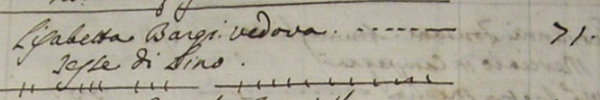 Lisabetta Bargi. vedova. - - - - - - 71.
Tesse di Lino.